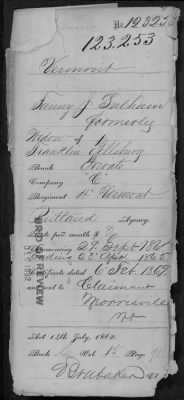 No. 123253
123.253
Vermont
Fanny J. Balham
formerly
Widow of
Franklin Pillsbury
Rank Private
Company "C"
Regiment 4" Vermont
Rutland Agency.
Rate per month $ 8
Commencing 29 Sept 186
Ending 23" Apr 1865
Certificate dated 6 Oct 1869
and sent to Claimant
Morrisville
Vt
Act 14th July, 1862.
Book Vol. Page
Brubaker
BRD OF REVIEW